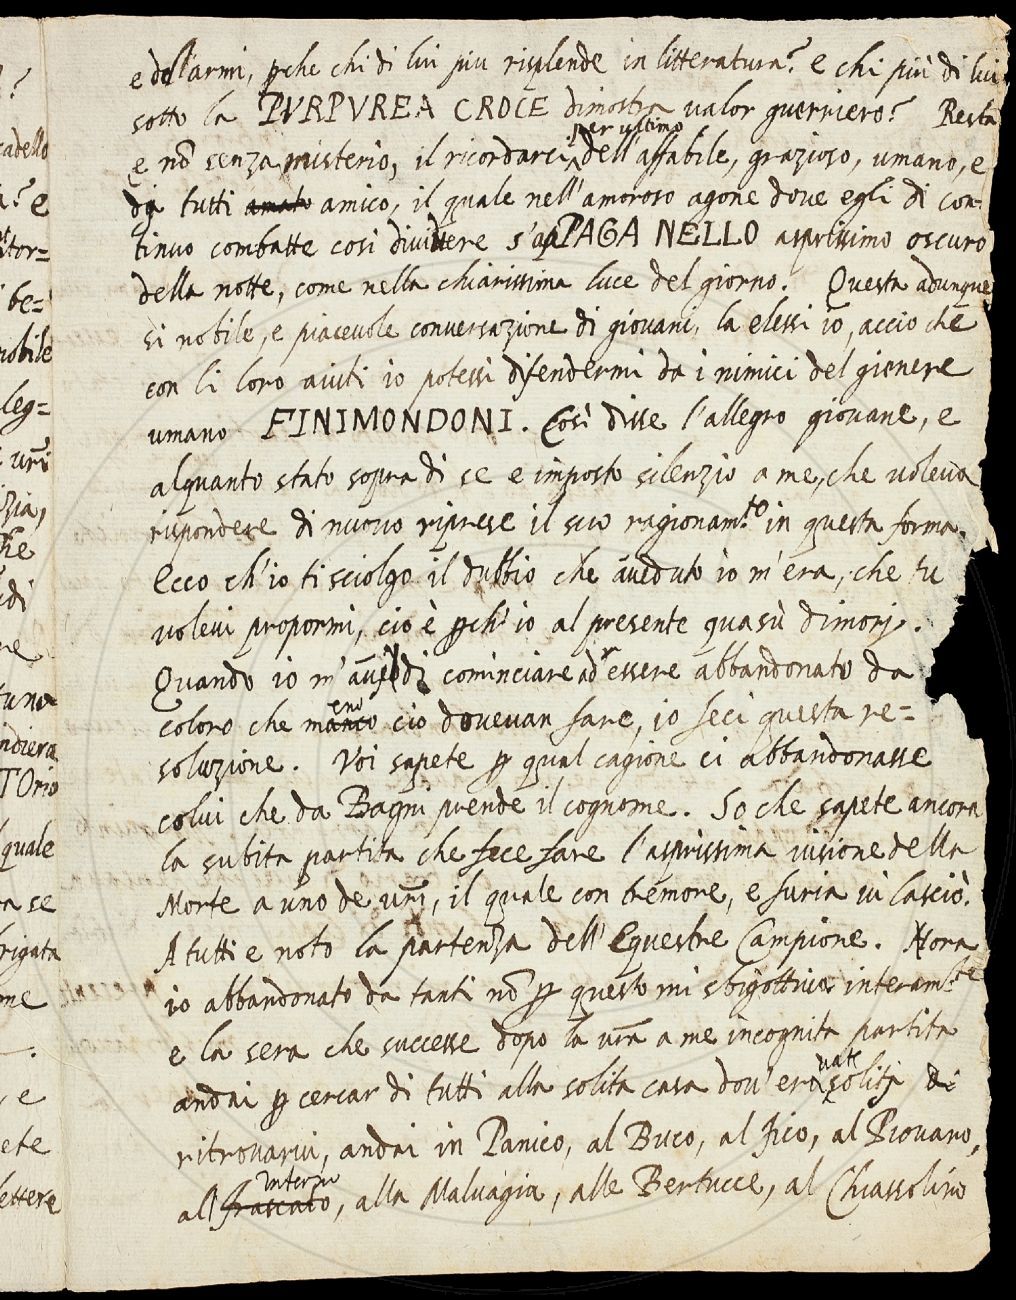 e dell'armi, ꝑche chi di lui piu risplende in litteratura? e chi più di lui
sotto la PVRPVREA CROCE dimostra valor guerriero? Resta
e nõ senza misterio, il ricordarci per ultimo dell'affabile, grazioso, umano, e
da tutti amato amico, il quale nell'amoroso agone dove egli di con-
tinuo combatte cosi s'apPAGA NELLO asprissimo oscuro
della notte, come nella chiarissima luce del giorno. Questa adunque
si nobile, e piacevole conversazione di giovani, la elessi io, accio che
con li loro aiuti io potessi difendermi da i nimici del gienere
umano FINIMONDONI. Così disse l'allegro giovane, e
alquanto stato sopra di se e imposto silenzio a me, che voleva
rispondere di nuovo riprese il suo ragionam.to in questa forma.
Ecco ch'io ti sciolgo il dubbio che aveduto io m'era, che tu
volevi propormi, cio è ꝑch'io al presente quasù dimorj.
Quando io m'avvidi cominciare ad essere abbandonato da
coloro che manco meno cio dovevan fare, io feci questa re=
soluzione. Voi sapete ꝑ qual cagione ci abbandonasse
colui che da Bagni prende il cognome. So che sapete ancora
la subita partita che fece fare l'asprissima visione della
Morte a uno de vr̃i, il quale con tremore, e furia vi lasciò.
A tutti e noto la partenza dell'Equestre Campione. Hora
io abbandonato da tanti nõ ꝑ questo mi sbigottivo interam.te
e la sera che successe dopo la vr̃a a me incognita partita
andai ꝑ cercar di tutti alla solita casa dov'eravate solitj di
ritrovarvi, andai in Panico, al Buco, al Fico, al Piovano,
al frascato Interno, alla Malvagia, alle Bertucce, al Chiassolino